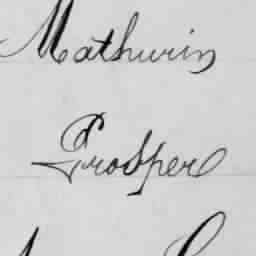 Mathurin
Prosper